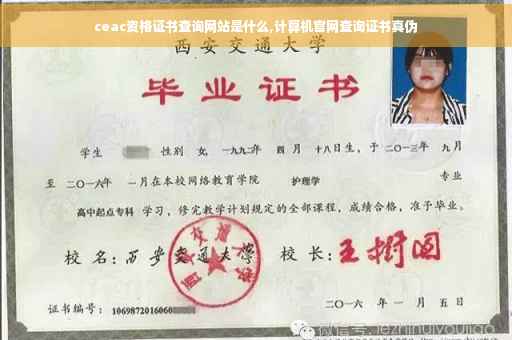 ceac资格证书查询网站是什么,计算机官网查询证书真伪
西安交通大学
毕业证书
学生 性别 女, 一九九二年 四月 十八日生, 于二〇一三年 九月
至 二〇一六年 一月在本校网络教育学院 护理学 专业
高中起点专科 学习, 修完教学计划规定的全部课程, 成绩合格, 准予毕业。
校 名: 西安交通大学 校 长: 王树国
西安交通大学
证书编号: 1069872016060
二〇一六 年 一 月 五 日
微信号: jezhihuiyoujiao